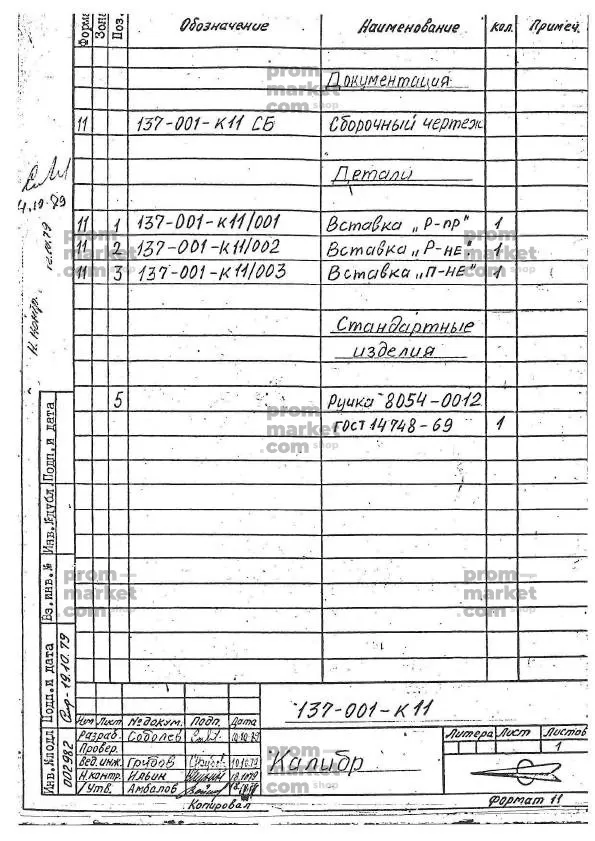 Форм. Зона Поз. Обозначение Наименование Кол. Примеч.
Документация
11 137-001-К11 СБ Сборочный чертеж
Детали
11 1 137-001-К11/001 Вставка „Р-ПР" 1
11 2 137-001-К11/002 Вставка „Р-НЕ" 1
11 3 137-001-К11/003 Вставка „П-НЕ" 1
Стандартные
изделия
5 Ручка 8054-0012
ГОСТ 14748-69 1
4.10.79
Н. контр.
Инв.№подл Подп.и дата Вз.инв.№ Инв.№дубл Подп.и дата
002982
19.10.79
137-001-К11
Изм Лист № докум. Подп. Дата
Разраб. Соболев
Провер.
Вед.инж. Грибов 10.10.79
Н.контр. Ильин
Утв. Амбалов
Калибр
Литера Лист Листов
1
Копировал Формат 11
prom
market
.com shop